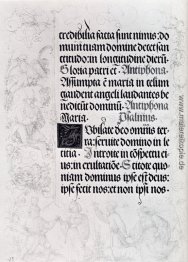 credibilia facta sunt nimis: do
mum tuam domine decet san
ctitudo: in longitudine dierū.
Gloria patri et̄. Antiphona
Assumpta ē maria in celum
gaudent angeli laudantes be
nedicūt dominū. Antiphona
Maria. Psalmus.
Iubilate deo omnis ter
ra: seruite domino in le
ticia. Introite in cōspectu ei
us: in exultatiōe. Scitote quo
niam dominus ipse est deus:
ipse fecit nos: et non ipsi nos.